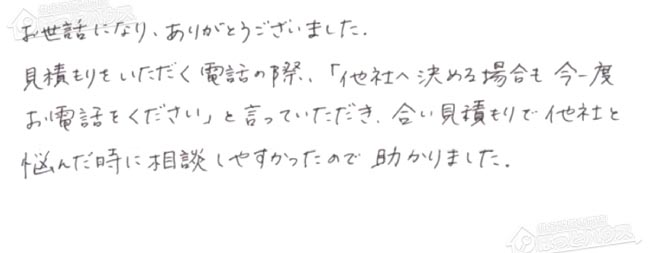 お世話になり、ありがとうございました.
見積もりをいただく電話の際、「他社へ決める場合も今一度
お電話をください」と言っていただき、合い見積もりで他社と
悩んだ時に相談しやすかったので助かりました.